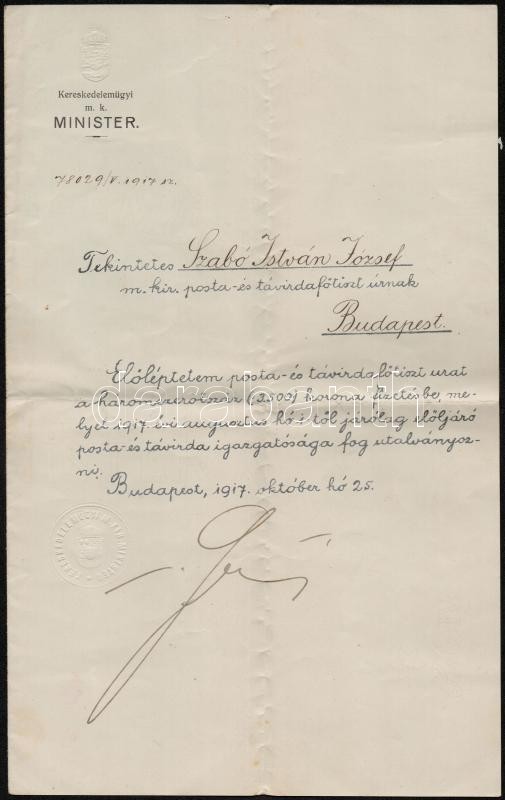 Kereskedelemügyi
m. k.
MINISTER.
78029/V. 1917 sz.
Tekintetes Szabó István József
m. kir. posta-és távirdafőtiszt úrnak
Budapest.
Előléptetem posta-és távirdafőtiszt urat
a háromezerötszáz (3500) korona fizetésbe, me-
lyet 1917. évi augusztus hó 1-től járólag előljáró
posta-és távirda igazgatósága fog utalványoz-
ni.
Budapest, 1917. október hó 25.
darabanth